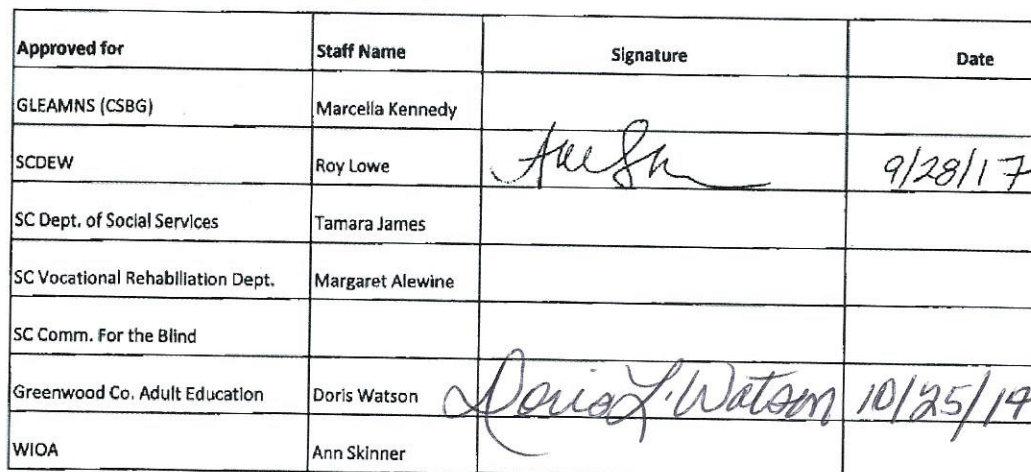 Approved for Staff Name Signature Date
GLEAMNS (CSBG) Marcella Kennedy
SCDEW Roy Lowe 9/28/17
SC Dept. of Social Services Tamara James
SC Vocational Rehabiliation Dept. Margaret Alewine
SC Comm. For the Blind
Greenwood Co. Adult Education Doris Watson Doris L. Watson 10/25/19
WIOA Ann Skinner